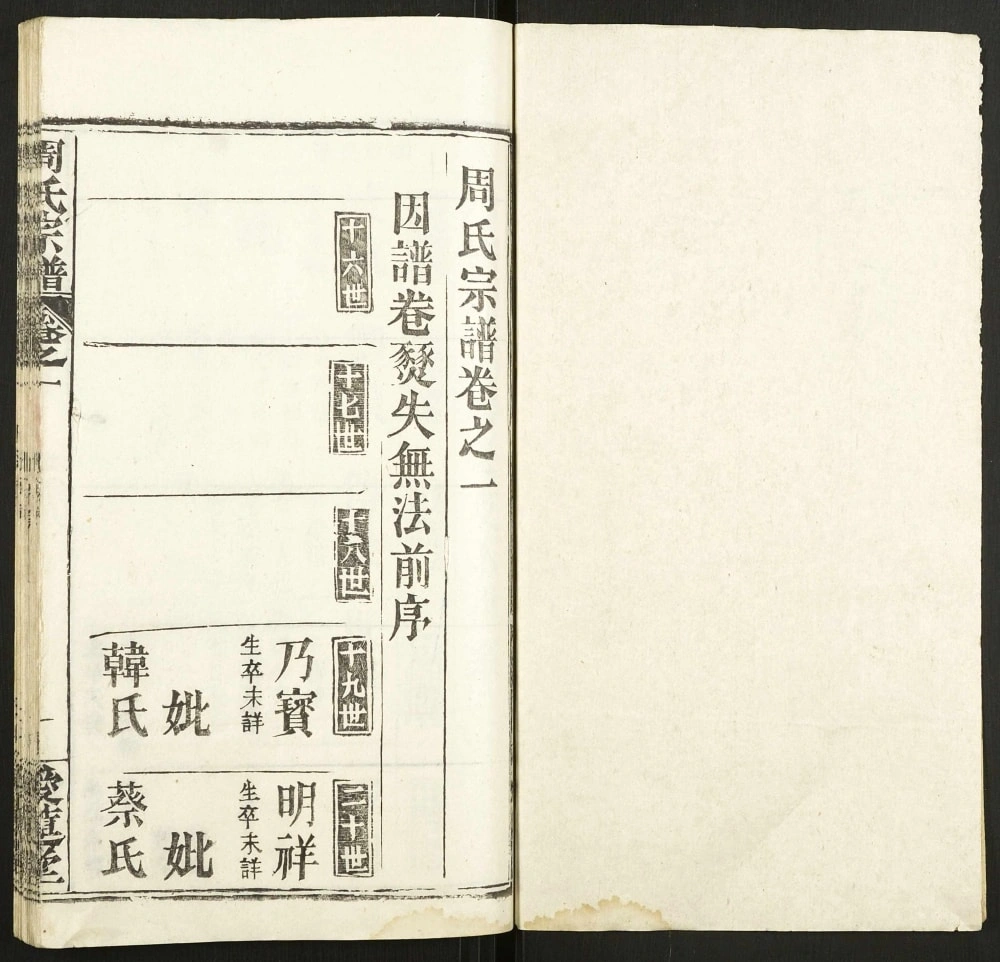 周氏宗譜卷之一
因譜卷燹失無法前序
十六世
十七世
十八世
十九世
乃寶
生卒未詳
妣
韓氏
二十世
明祥
生卒未詳
妣
蔡氏
周氏宗譜
卷之一
一
愛蓮堂